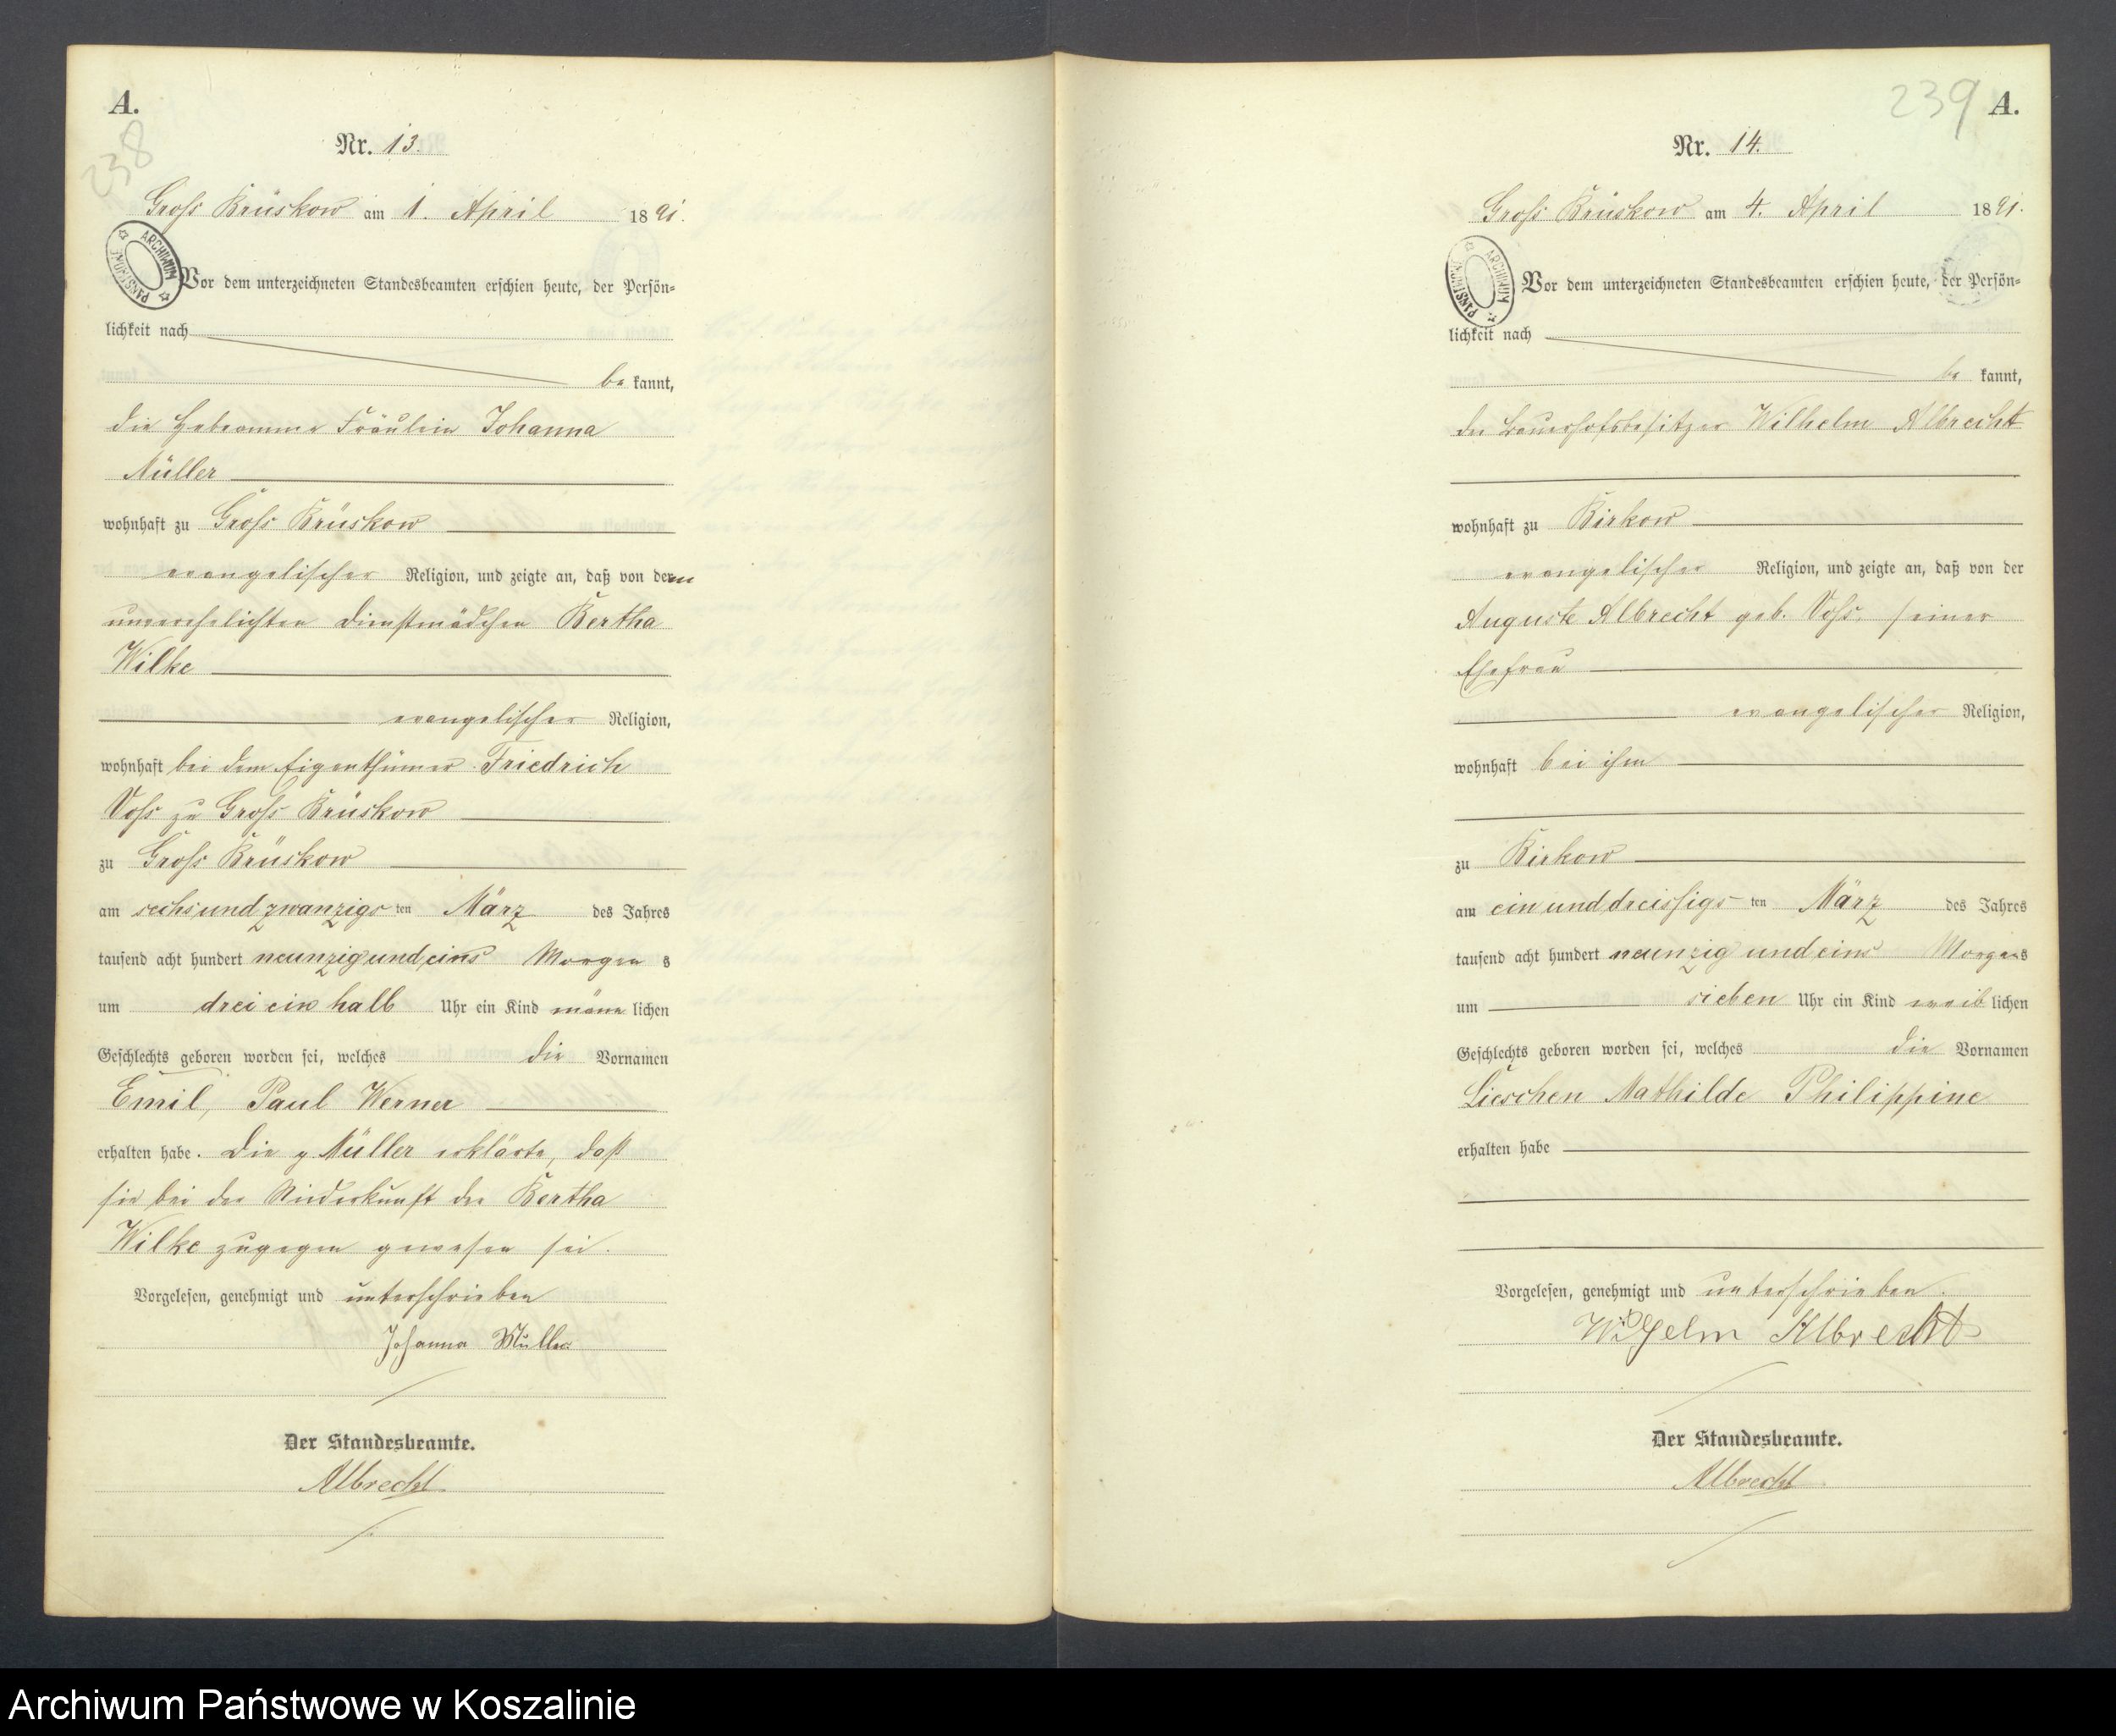 A.
238
Nr. 13.
Groß Brüskow am 1. April 1891.
ARCHIWUM PAŃSTWOWE
Vor dem unterzeichneten Standesbeamten erschien heute, der Persön=
lichkeit nach
be kannt,
die Hebeamme Fräulein Johanna
Müller
wohnhaft zu Groß Brüskow
evangelischer Religion, und zeigte an, daß von dem
unverehelichten Dienstmädchen Bertha
Wilke
evangelischer Religion,
wohnhaft bei dem Eigenthümer Friedrich
Voß zu Groß Brüskow
zu Groß Brüskow
am sechsundzwanzigs ten März des Jahres
tausend acht hundert neunzig und eins Morgen s
um drei ein halb Uhr ein Kind männ lichen
Geschlechts geboren worden sei, welches die Vornamen
Emil, Paul Werner
erhalten habe. Die p Müller erklärte, daß
sie bei der Niederkunft der Bertha
Wilke zugegen gewesen sei.
Vorgelesen, genehmigt und unterschrieben
Johanna Müller
Der Standesbeamte.
Albrecht
239
A.
Nr. 14.
Groß Brüskow am 4. April 1891.
ARCHIWUM PAŃSTWOWE
Vor dem unterzeichneten Standesbeamten erschien heute, der Persön=
lichkeit nach
be kannt,
der Bauerhofsbesitzer Wilhelm Albrecht
wohnhaft zu Birkow
evangelischer Religion, und zeigte an, daß von der
Auguste Albrecht geb. Voß, seiner
Ehefrau
evangelischer Religion,
wohnhaft bei ihm
zu Birkow
am ein und dreissigs ten März des Jahres
tausend acht hundert neunzig und eins Morgens
um sieben Uhr ein Kind weib lichen
Geschlechts geboren worden sei, welches die Vornamen
Lieschen Mathilde Philippine
erhalten habe
Vorgelesen, genehmigt und unterschrieben.
Wilhelm Albrecht
Der Standesbeamte.
Albrecht
Archiwum Państwowe w Koszalinie